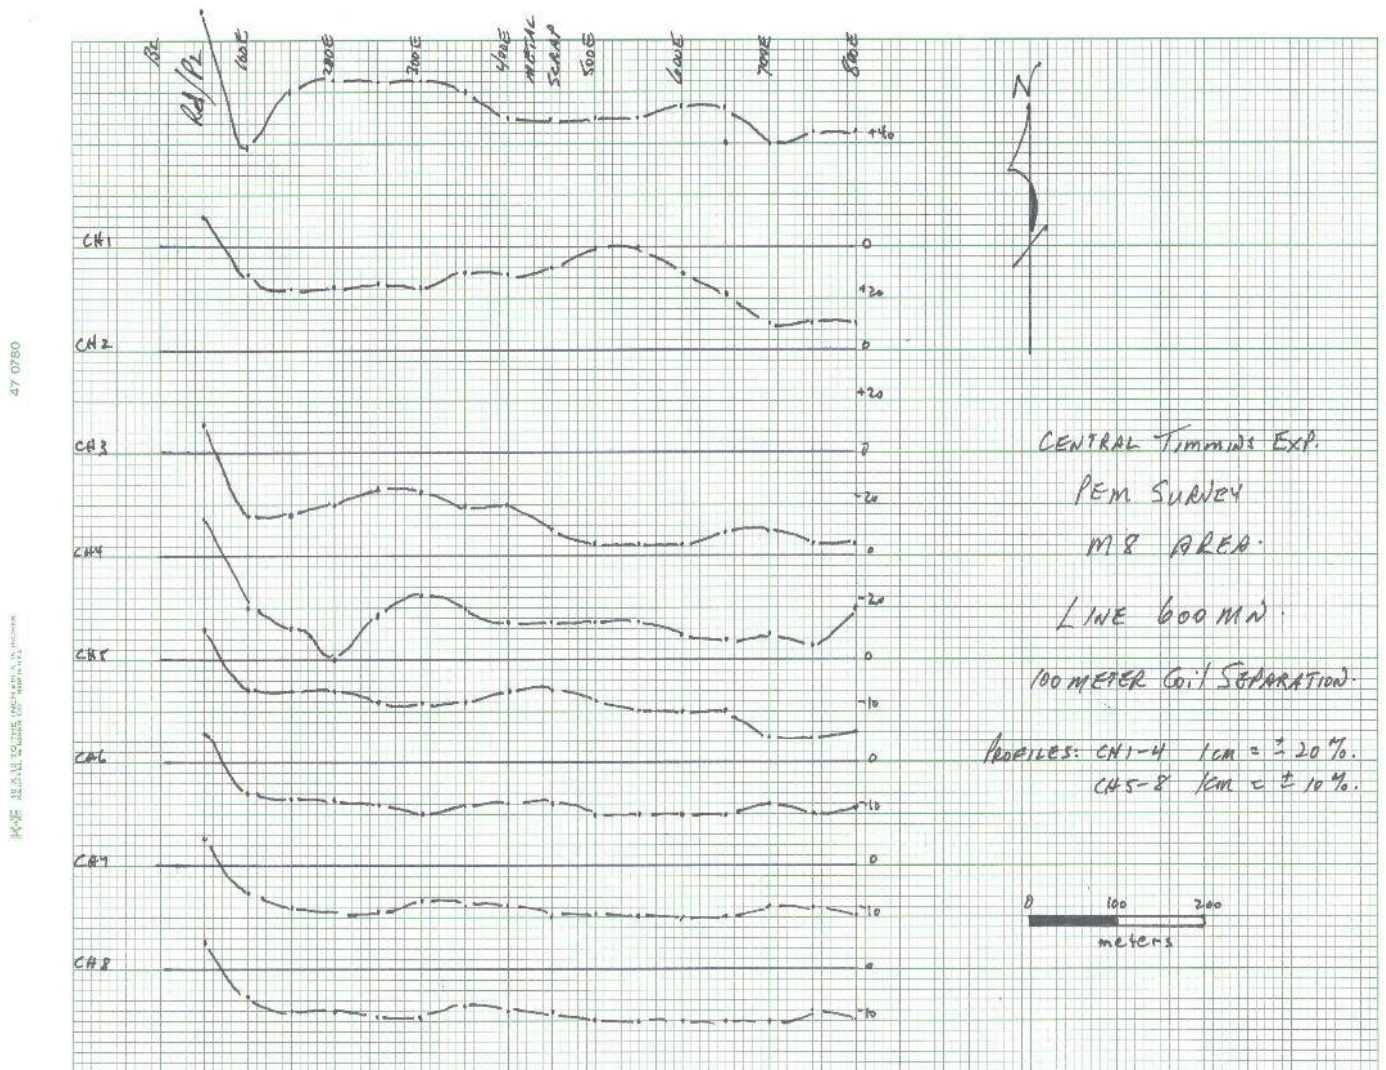 BL
Rd/PL
100E
200E
300E
400E
METAL
SCRAP
500E
600E
700E
800E
N
+40
CH1
0
+20
CH2
0
+20
CH3
0
-20
CH4
0
-20
CH5
0
-10
CH6
0
-10
CH7
0
-10
CH8
0
-10
CENTRAL TIMMINS EXP.
PEM SURVEY
M8 AREA.
LINE 600MN.
100 METER Coil SEPARATION.
PROFILES: CH1-4 1cm = ± 20%.
CH5-8 1cm = ± 10%.
0 100 200
meters
47 0780
K+E